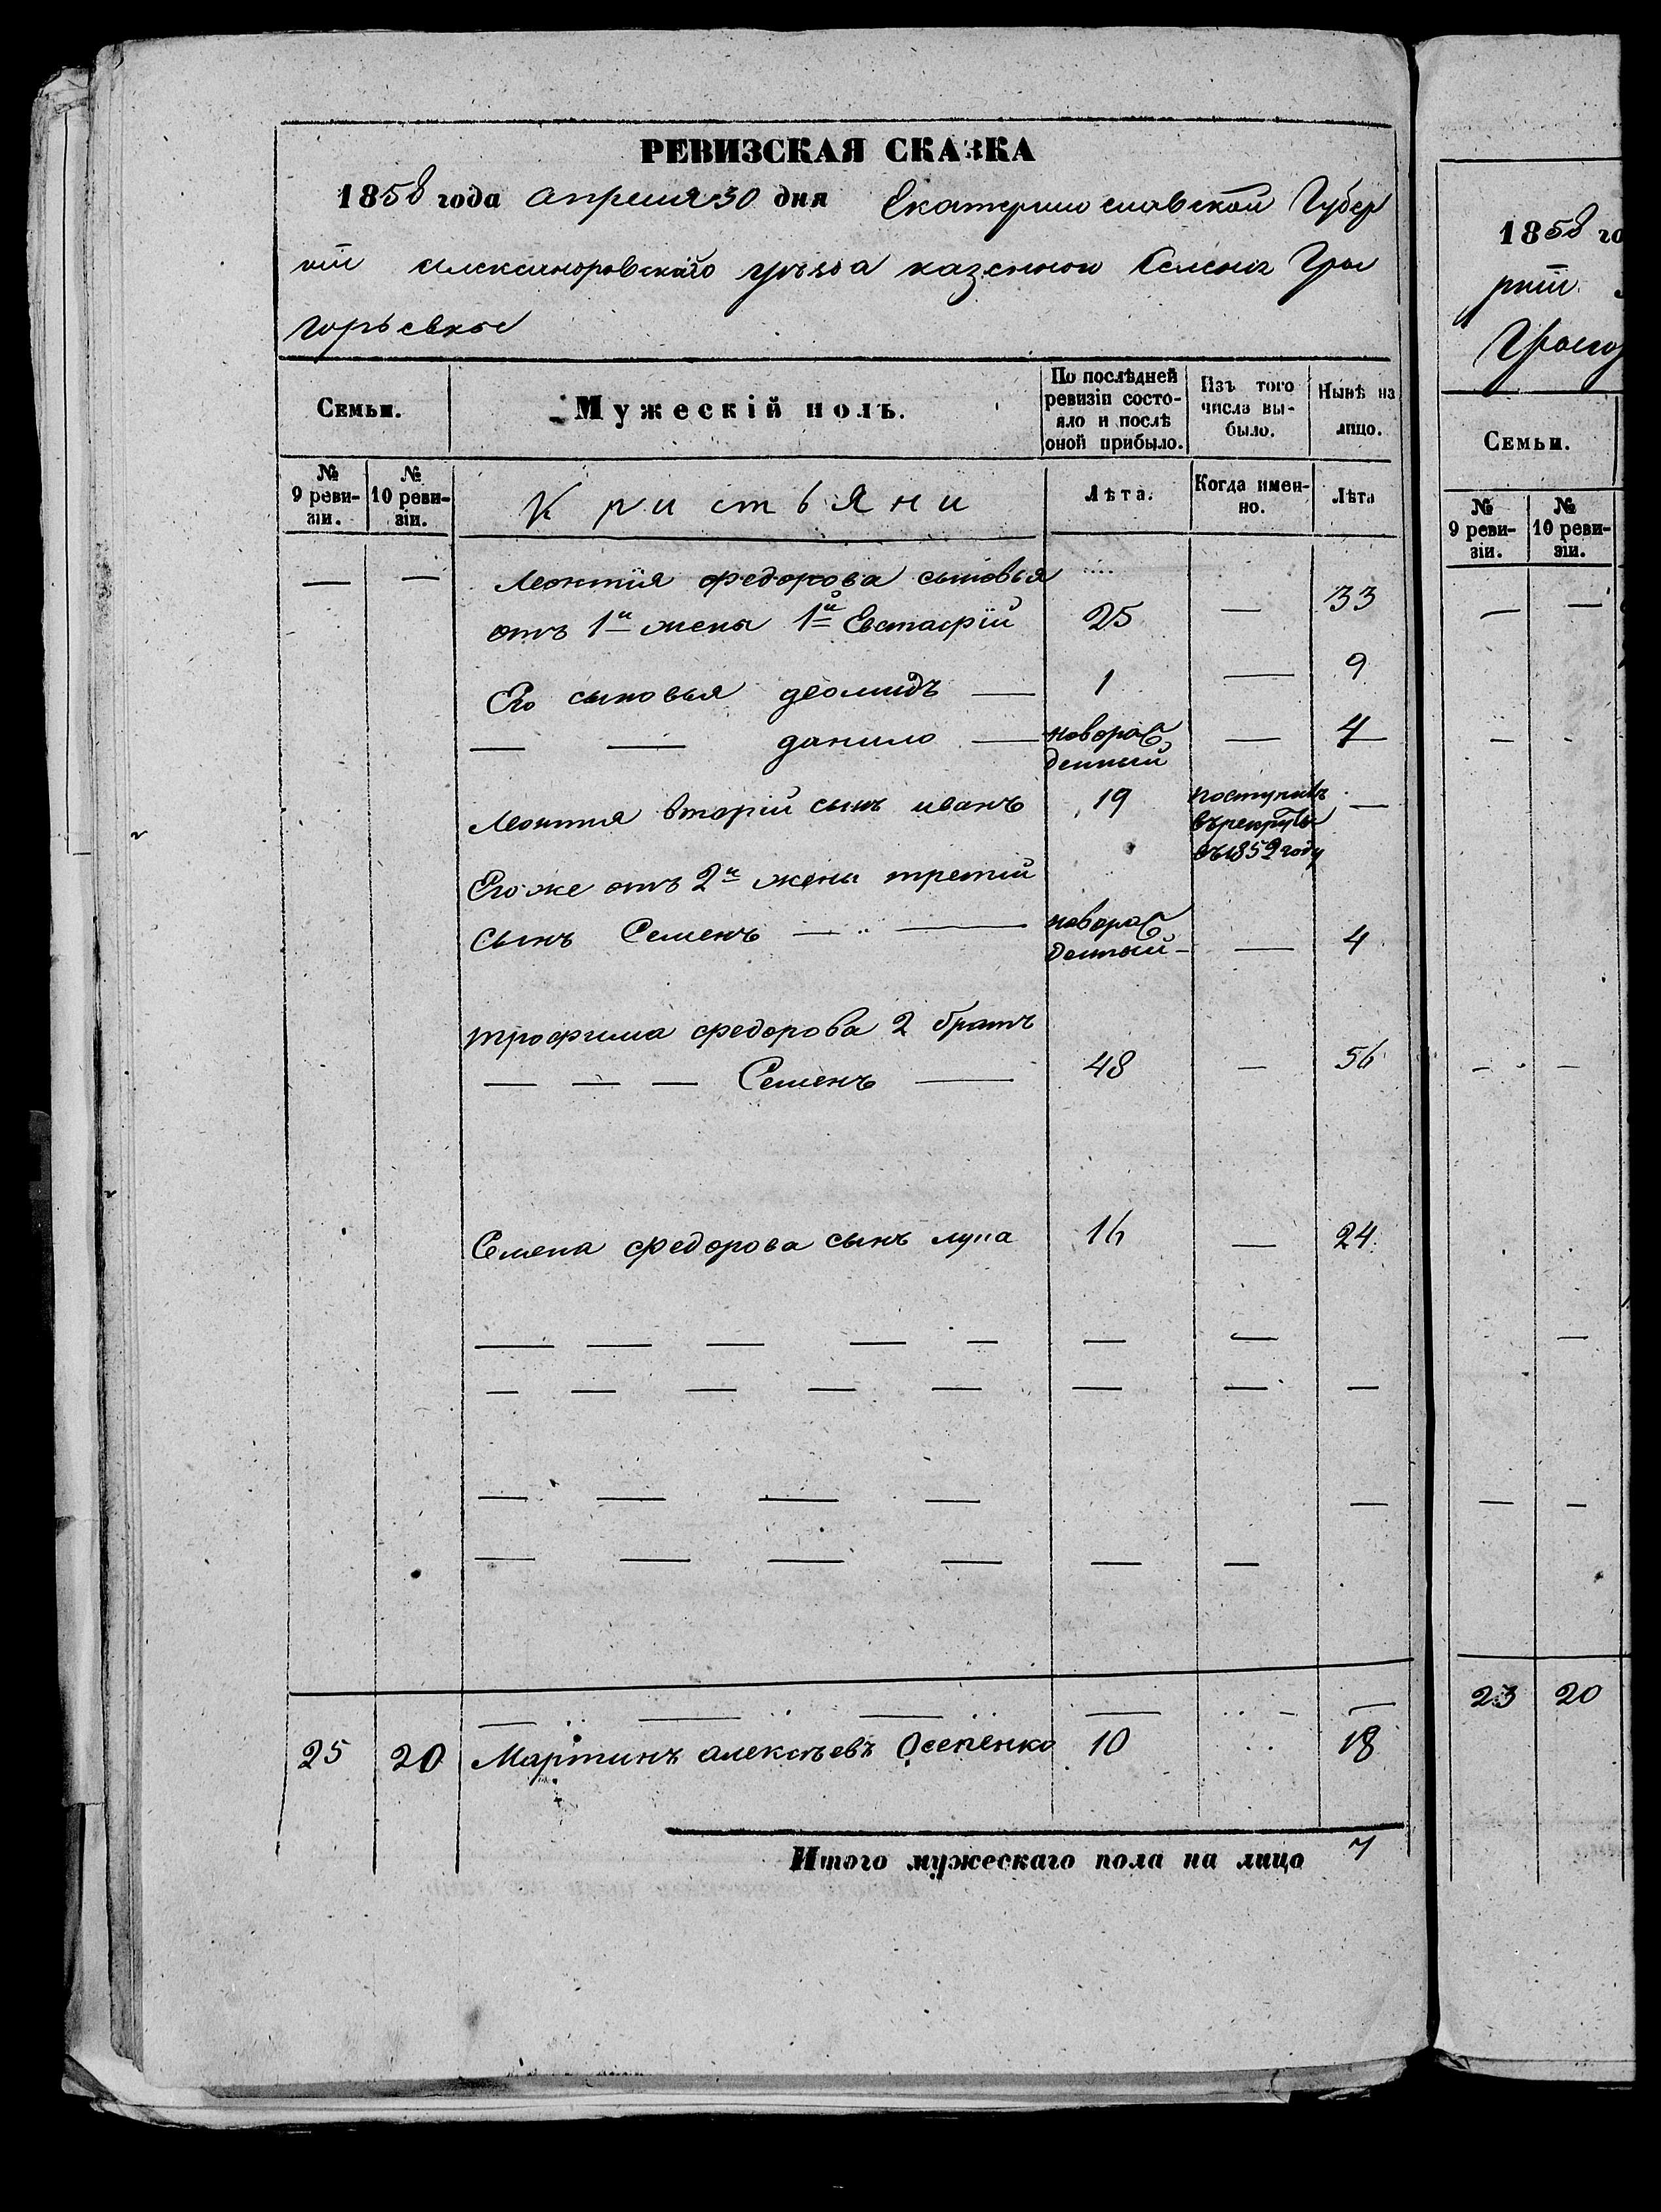 РЕВИЗСКАЯ СКАЗКА
1858 года апреля 30 дня Екатеринославской Губер
ніи александровскаго уѣзда казенном Селенія Гри
горьевкое
Семьи.
Мужескій полъ.
По послѣдней ревизіи состояло и послѣ оной прибыло.
Изъ того числа выбыло.
Нынѣ на лицо.
№ 9 ревизіи.
№ 10 ревизіи.
Кристьяни
Лѣта.
Когда именно.
Лѣта
— — Леонтія федорова сыновья
отъ 1й жены 1й Евстафій 25 — 33
Его сыновья деомидъ — 1 — 9
— — данило — новорож
денный — 4
Леонтия вторій сынъ иванъ 19 поступилъ
въ рекруты
въ 1852 году —
Его же отъ 2й жены третій
сынъ Семенъ — новорож
денный — — 4
трофима федорова 2 братъ
— — — Семенъ — 48 — 56
Семена федорова сынъ лупа 16 — 24
25 20 Мартинъ алексѣевъ Осепенко 10 18
Итого мужескаго пола на лицо 7
1858 го
рніи
Григор
Семьи.
№ 9 ревизіи.
№ 10 ревизіи.
23 20